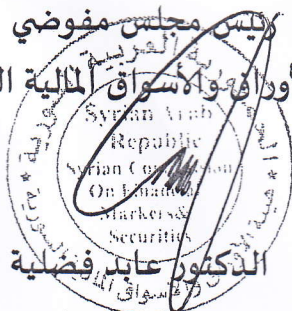 رئيس مجلس مفوضي
أوراق والأسواق المالية
Syrian Arab
Republic
Syrian Commission
On Financial
Markets &
Securities
الدكتور عابد فضلية